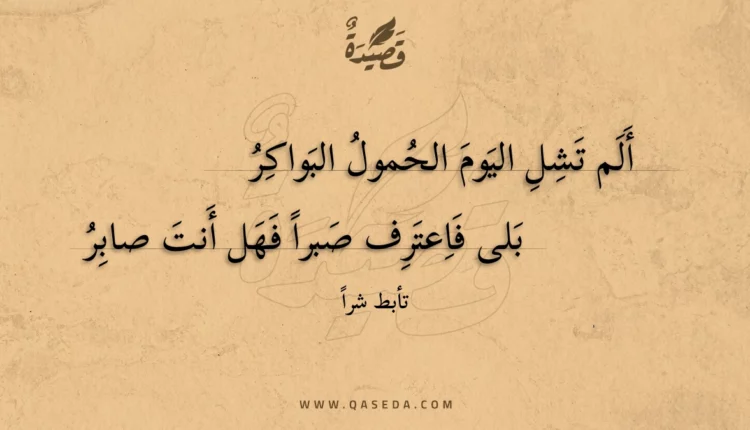 قَصِيْدَةٌ
أَلَم تَشِلِ اليَومَ الحُمولُ البَواكِرُ
بَلى فَاِعتَرِف صَبراً فَهَل أَنتَ صابِرُ
تأبط شراً
WWW.QASEDA.COM